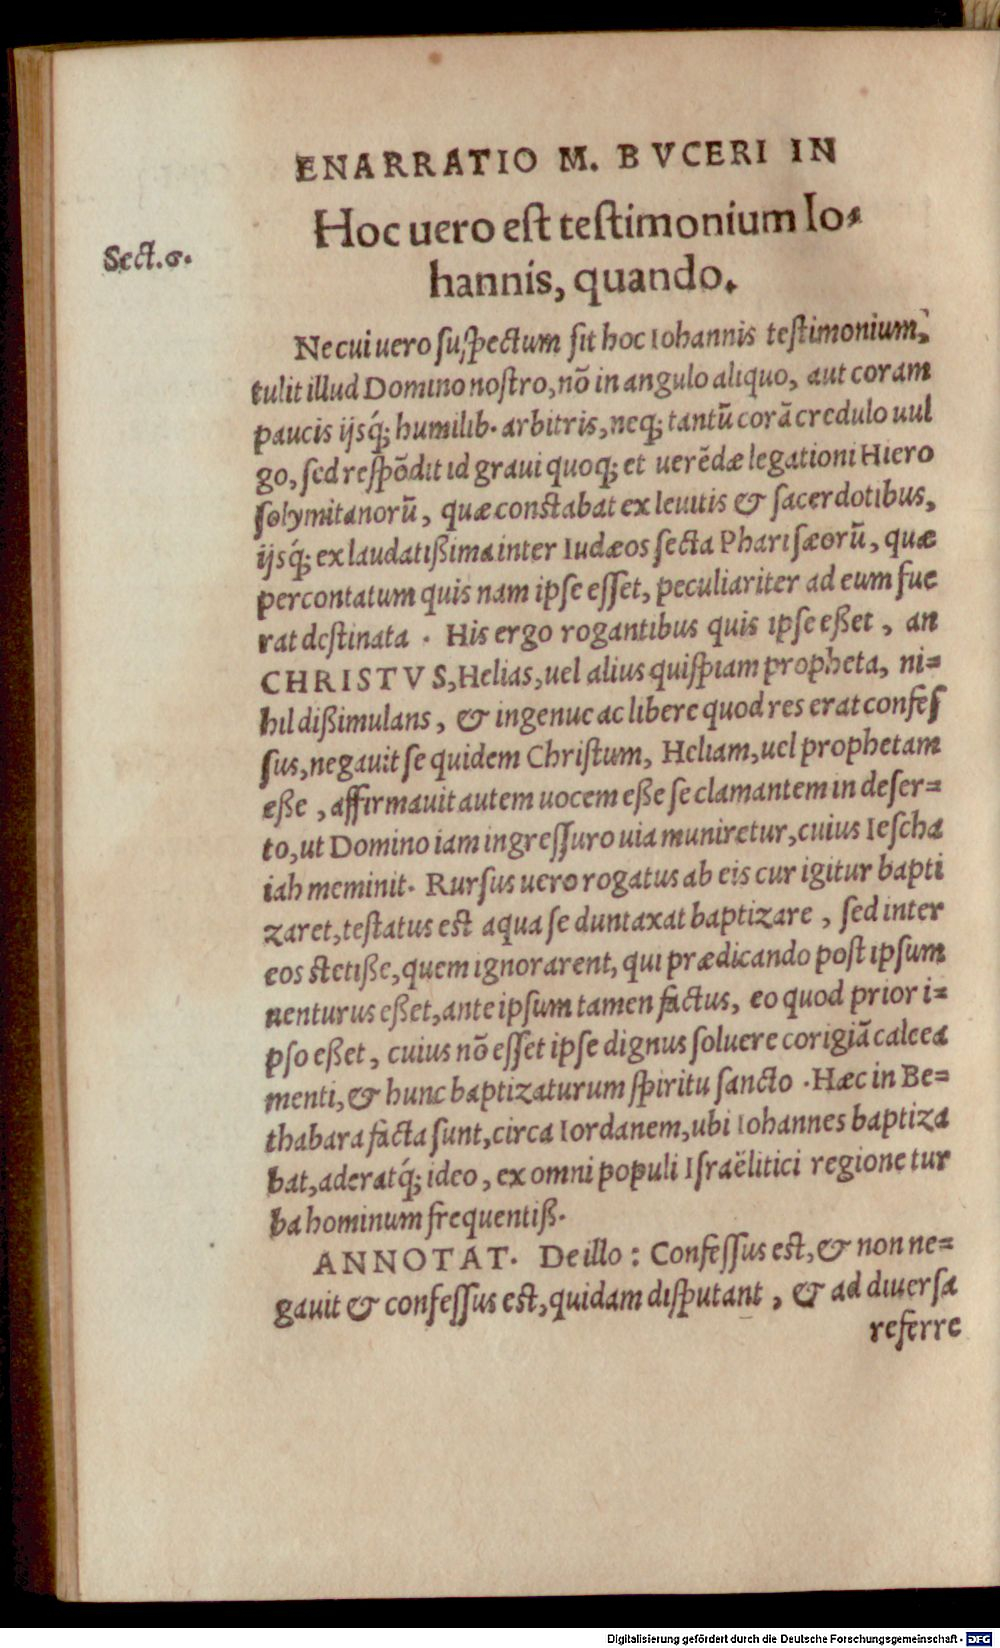 ENARRATIO M. BVCERI IN
Hoc uero eſt teſtimonium Io-
hannis, quando.
Sect.6.
Ne cui uero ſuſpectum ſit hoc Iohannis teſtimonium,
tulit illud Domino noſtro, nō in angulo aliquo, aut coram
paucis ijsq́; humilib. arbitris, neq; tantū corā credulo uul
go, ſed reſpōdit id graui quoq; et uerēdæ legationi Hiero
ſolymitanorū, quæ conſtabat ex leuitis & ſacerdotibus,
ijsq́; ex laudatißima inter Iudæos ſecta Phariſæorū, quæ
percontatum quis nam ipſe eſſet, peculiariter ad eum fue
rat deſtinata. His ergo rogantibus quis ipſe eßet, an
CHRISTVS, Helias, uel alius quiſpiam propheta, ni=
hil dißimulans, & ingenue ac libere quod res erat confeſ
ſus, negauit ſe quidem Chriſtum, Heliam, uel prophetam
eße, affirmauit autem uocem eße ſe clamantem in deſer=
to, ut Domino iam ingreſſuro uia muniretur, cuius Ieſcha
iah meminit. Rurſus uero rogatus ab eis cur igitur bapti
zaret, teſtatus eſt aqua ſe duntaxat baptizare, ſed inter
eos ſtetiße, quem ignorarent, qui prædicando poſt ipſum
uenturus eßet, ante ipſum tamen factus, eo quod prior i=
pſo eßet, cuius nō eſſet ipſe dignus ſoluere corigiā calcea
menti, & hunc baptizaturum ſpiritu ſancto. Hæc in Be=
thabara facta ſunt, circa Iordanem, ubi Iohannes baptiza
bat, aderatq́; ideo, ex omni populi Iſraëlitici regione tur
ba hominum frequentiß.
ANNOTAT. De illo: Confeſſus eſt, & non ne=
gauit & confeſſus eſt, quidam diſputant, & ad diuerſa
referre
Digitalisierung gefördert durch die Deutsche Forschungsgemeinschaft - DFG